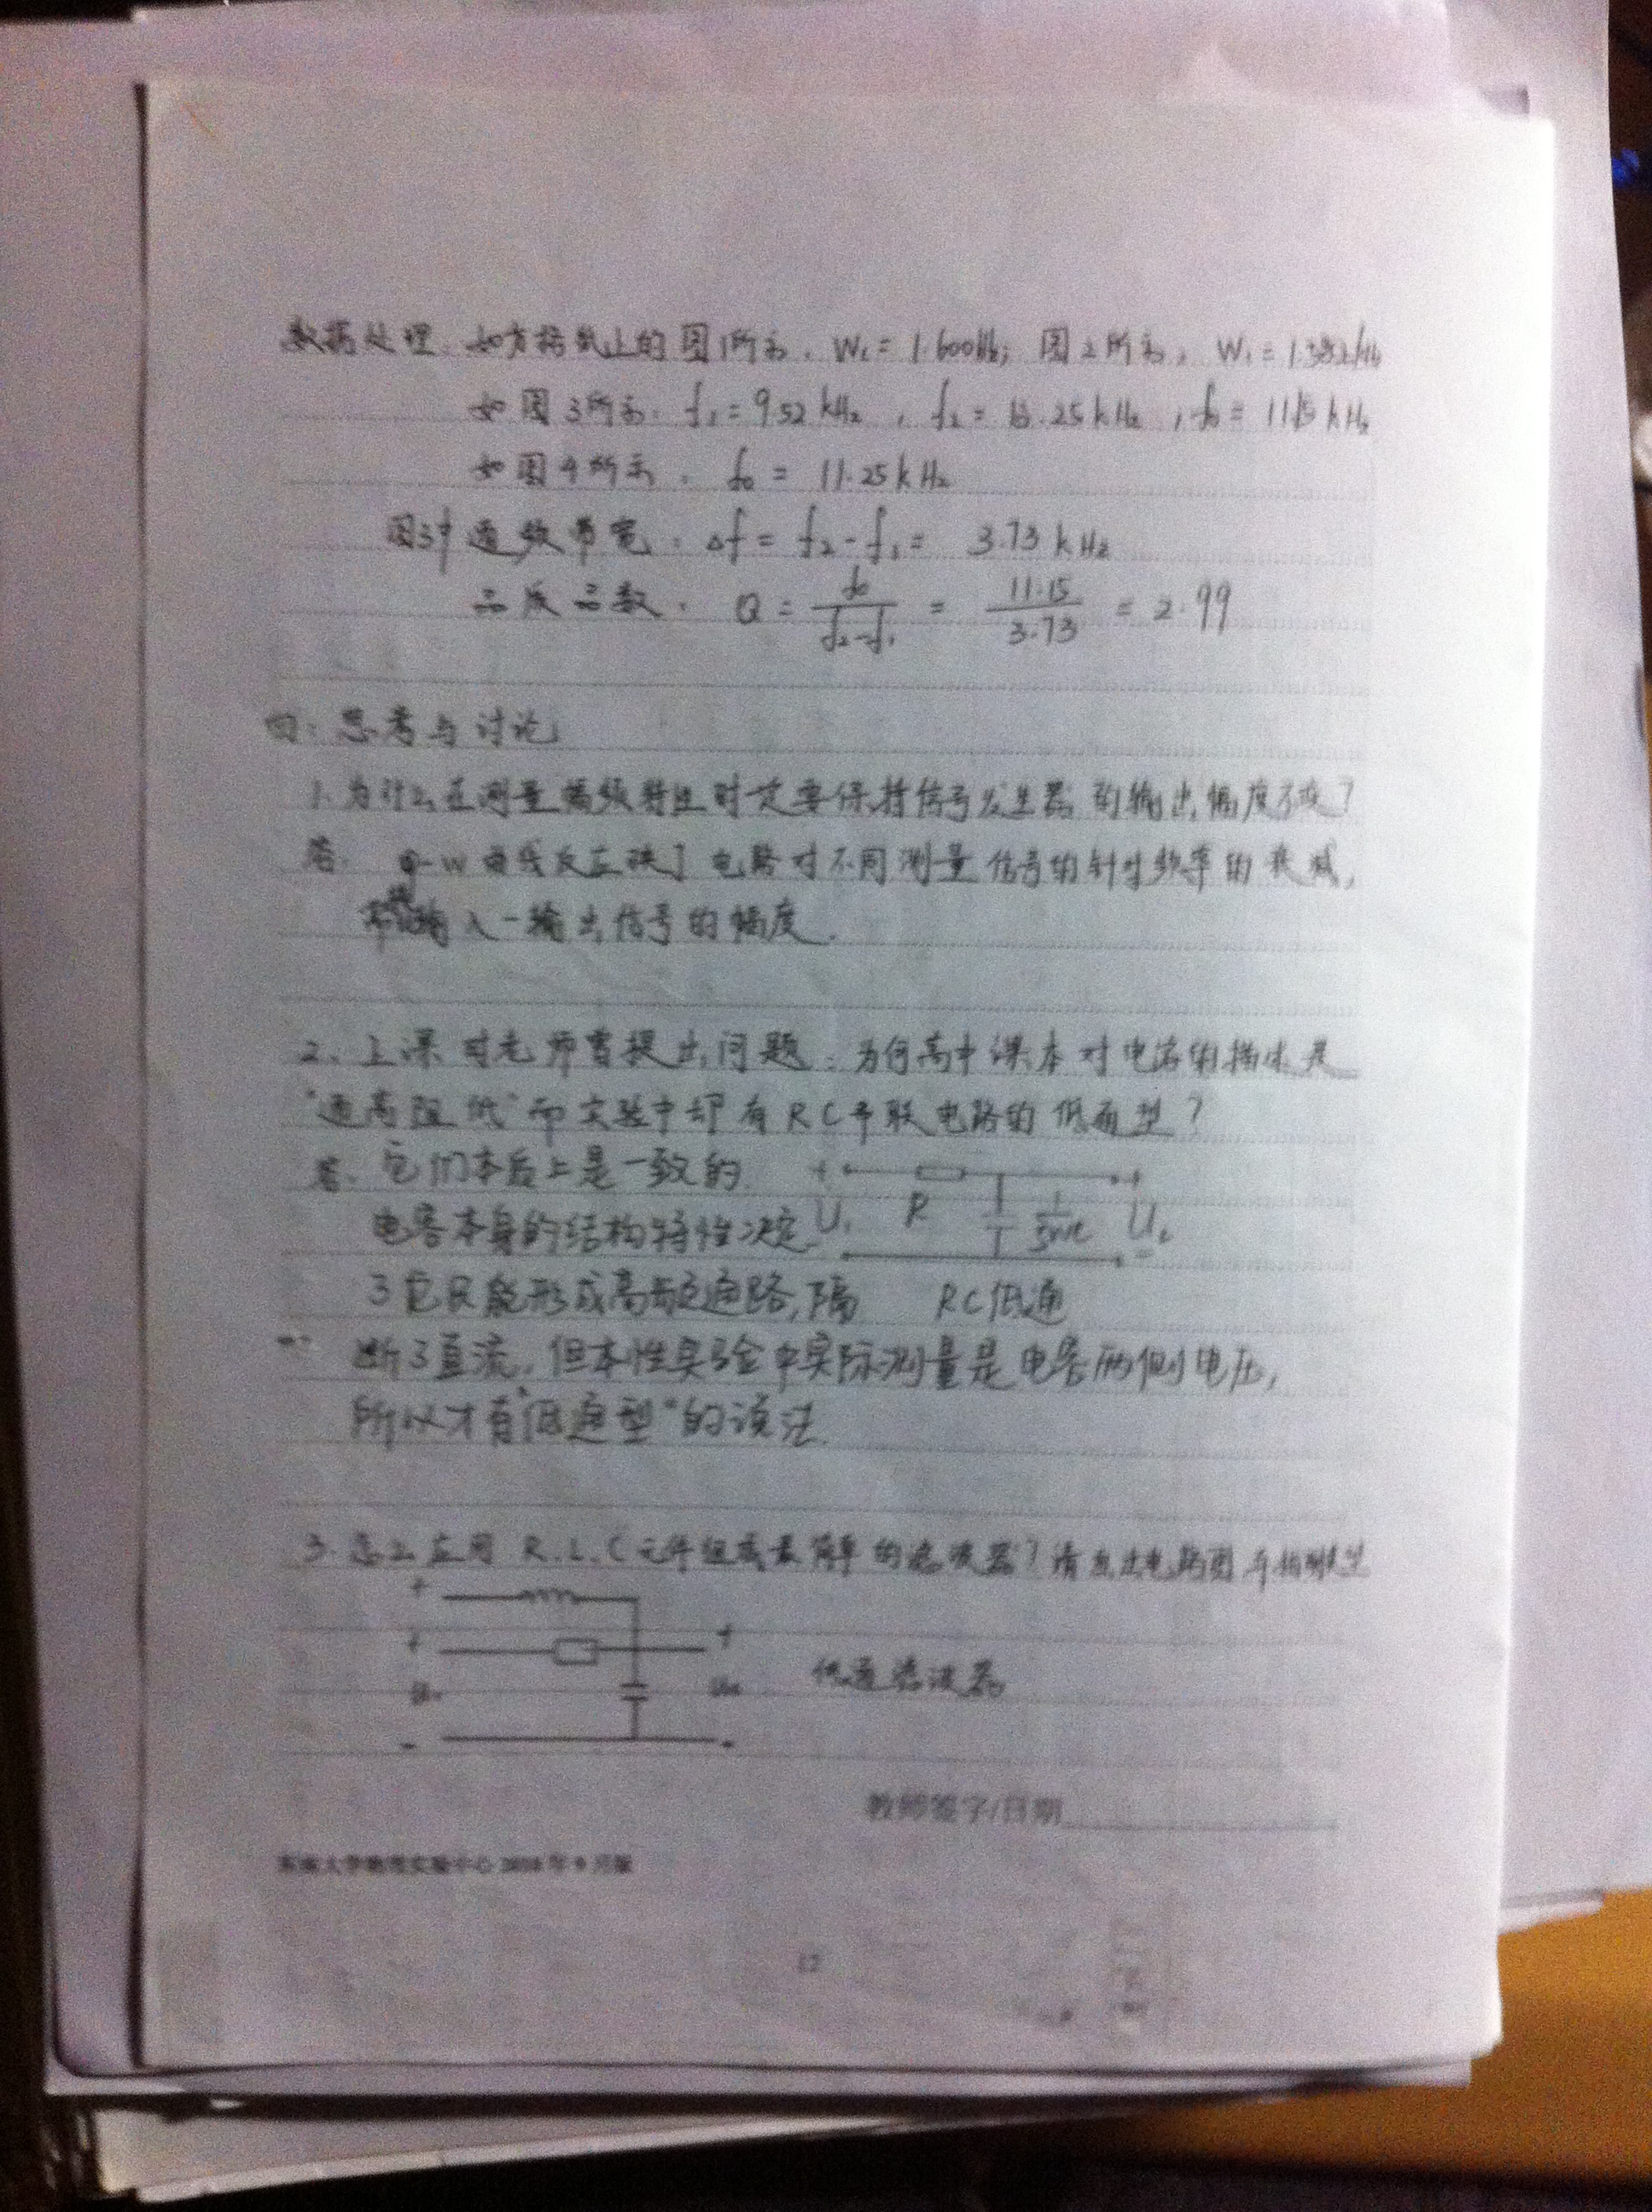 数据处理:如方格纸上的图1所示,Wc = 1.600kHz;图2所示,W₁ = 1.382kHz
如图3所示:f₁ = 9.52 kHz,f₂ = 13.25 kHz,f₀ = 11.15 kHz
如图4所示,f₀ = 11.25 kHz
图3中通频带宽:Δf = f₂-f₁ = 3.73 kHz
品质品数:Q = f₀/(f₂-f₁) = 11.15/3.73 = 2.99
四:思考与讨论
1.为什么在测量幅频特性时一定要保持信号发生器的输出幅度不变?
答: φ-w曲线反应映了电路对不同测量信号的针对频率的衰减,
输入-输出信号的幅度.
2、上课时老师曾提出问题:为何高中课本对电容的描述是
"通高阻低"而实验中却有RC串联电路的低通型?
答:它们本质上是一致的
电容本身的结构特性决定
了它只能形成高频通路,隔
断了直流,但本性实验中实际测量是电容两侧电压,
所以才有"低通型"的说法.
+ +
U₁ R U₂
-
RC低通
3.怎么应用R.L.C元件组成最简单的滤波器?请画出电路图,并指明类型
+
+ +
- -
低通滤波器
教师签字/日期
东南大学物理实验中心 2010年9月版
12